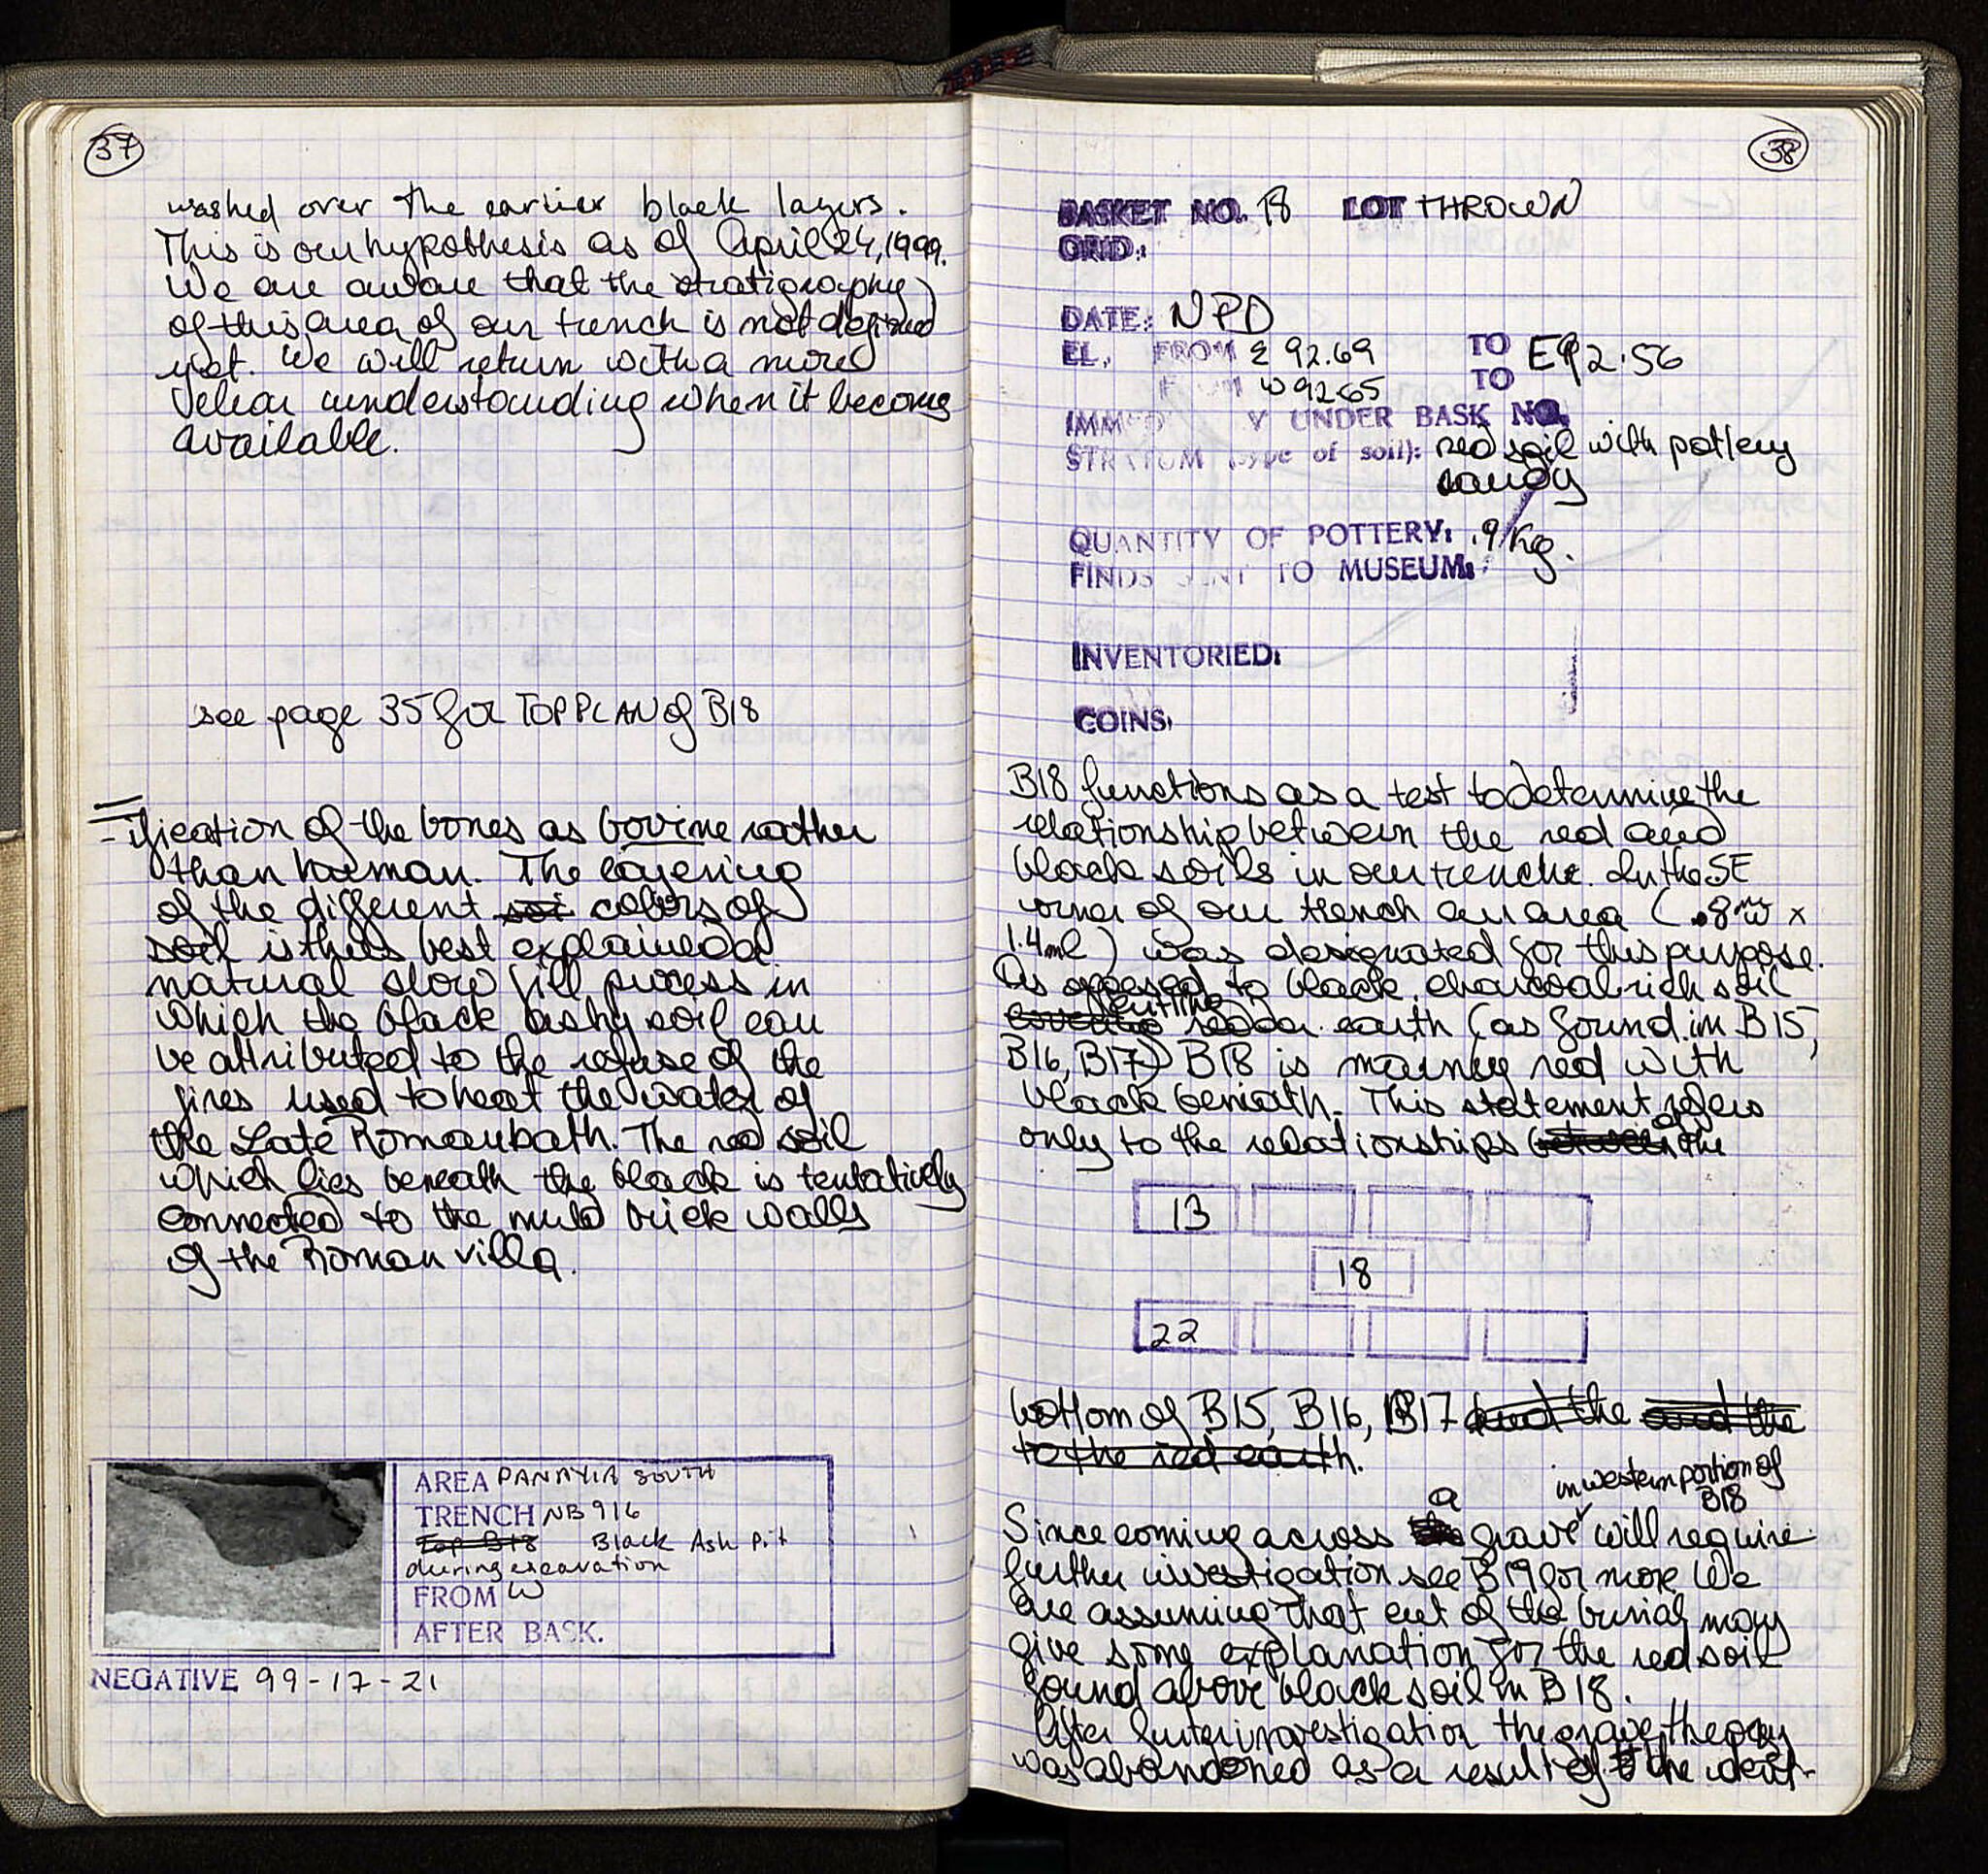 37
washed over the earlier black layers.
This is our hypothesis as of April 24, 1999.
We are aware that the stratigraphy
of this area of our trench is not defined
yet. We will return with a more
clear understanding when it becomes
available.
see page 35 for TOP PLAN of B18
-ification of the bones as bovine rather
than human. The layering
of the different soi colors of
soil is thus best explained a
natural slow fill process in
which the black ashy soil can
be attributed to the refuse of the
fires used to heat the water of
the Late Roman bath. The red soil
which lies beneath the black is tentatively
connected to the mud brick walls
of the Roman villa.
AREA PANAYIA SOUTH
TRENCH NB 916
Top B18 Black Ash Pit
during excavation
FROM W
AFTER BASK.
NEGATIVE 99-17-21
38
BASKET NO. 18 LOT THROWN
GRID:
DATE: NPD
EL. FROM E 92.69 TO E 92.56
FROM W 92.65 TO
IMMED Y UNDER BASK NO.
STRATUM (type of soil): red soil with pottery
sandy
QUANTITY OF POTTERY: .9 kg.
FINDS SENT TO MUSEUM:
INVENTORIED:
COINS:
B18 functions as a test to determine the
relationship between the red and
black soils in our trench. In the SE
corner of our trench an area (.8m w x
1.4m l) was designated for this purpose.
As opposed to black, charcoal rich soil
cutting
redder earth (as found in B15,
B16, B17) B18 is mainly red with
black beneath. This statement refers
of
only to the relationships between the
13
18
22
bottom of B15, B16, B17 and the and the
to the red earth.
a in western portion of
B18
Since coming across grave will require
further investigation see B19 for more. We
are assuming that cut of the burial may
give some explanation for the red soil
found above black soil in B18.
After further investigation the grave theory
was abandoned as a result of the ident-